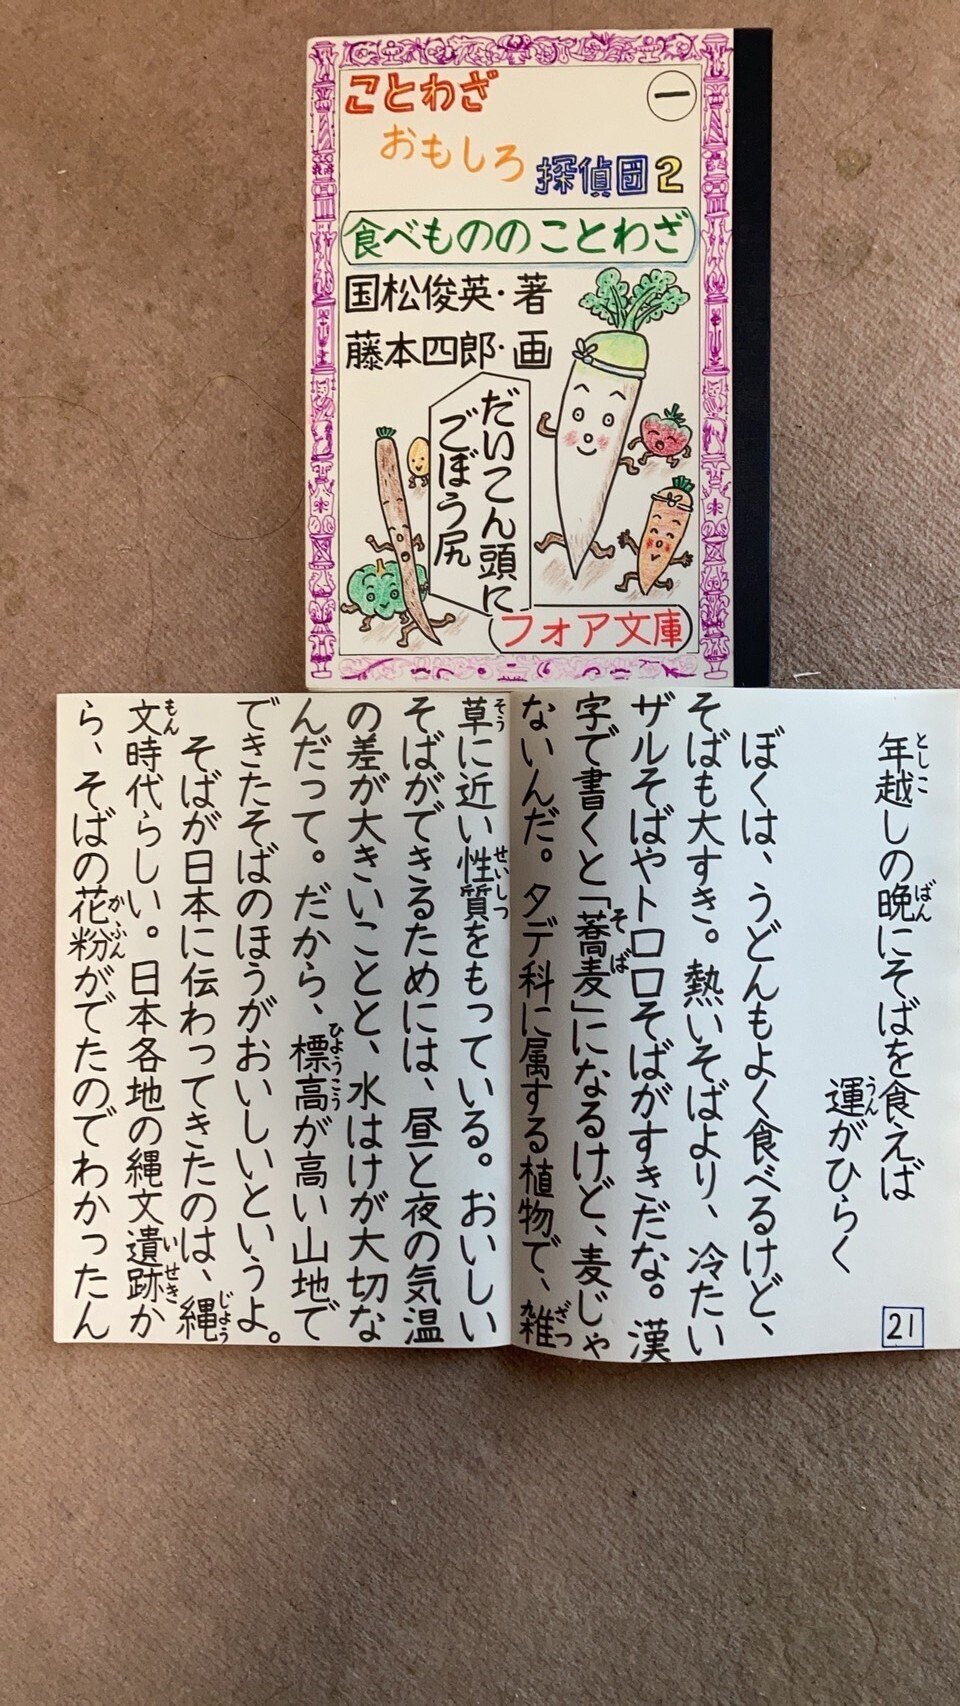 ことわざ
おもしろ
探偵団2
一
食べもののことわざ
国松俊英・著
藤本四郎・画
だいこん頭に
ごぼう尻
フォア文庫
年越しの晩にそばを食えば
としこ
ばん
運がひらく
うん
21
ぼくは、うどんもよく食べるけど、
そばも大すき。熱いそばより、冷たい
ザルそばやトロロそばがすきだな。漢
字で書くと「蕎麦」になるけど、麦じゃ
そば
ないんだ。タデ科に属する植物で、雑
ざっ
草に近い性質をもっている。おいしい
そう
せいしつ
そばができるためには、昼と夜の気温
の差が大きいことと、水はけが大切な
んだって。だから、標高が高い山地で
ひょうこう
できたそばのほうがおいしいというよ。
そばが日本に伝わってきたのは、縄
じょう
文時代らしい。日本各地の縄文遺跡か
もん
いせき
ら、そばの花粉がでたのでわかったん
かふん